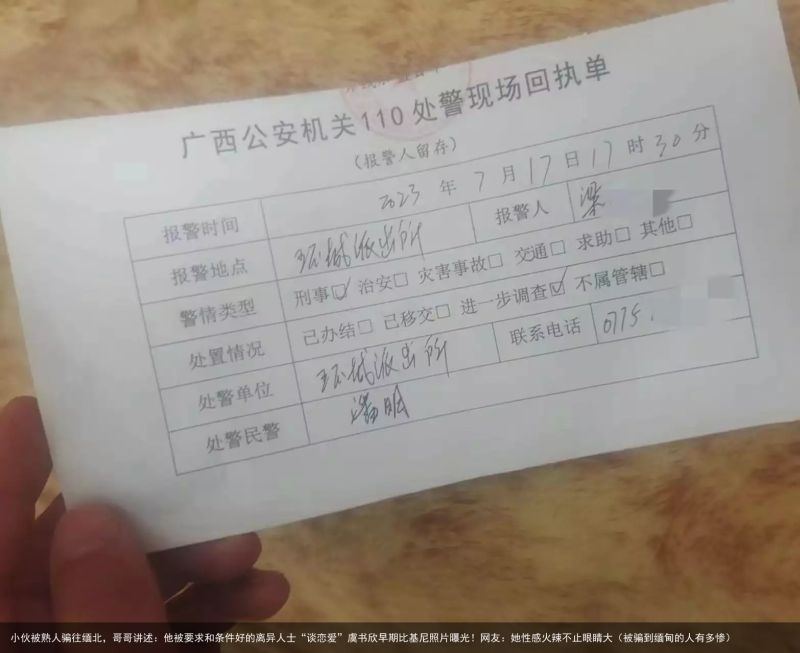 广西公安机关110处警现场回执单
(报警人留存)
报警时间 2023年7月17日17时30分
报警地点 环城派出所 报警人 梁
警情类型 刑事☑ 治安□ 灾害事故□ 交通□ 求助□ 其他□
处置情况 已办结□ 已移交□ 进一步调查☑ 不属管辖□
处警单位 环城派出所 联系电话 0775
处警民警
小伙被熟人骗往缅北，哥哥讲述：他被要求和条件好的离异人士“谈恋爱”虞书欣早期比基尼照片曝光！网友：她性感火辣不止眼睛大（被骗到缅甸的人有多惨）